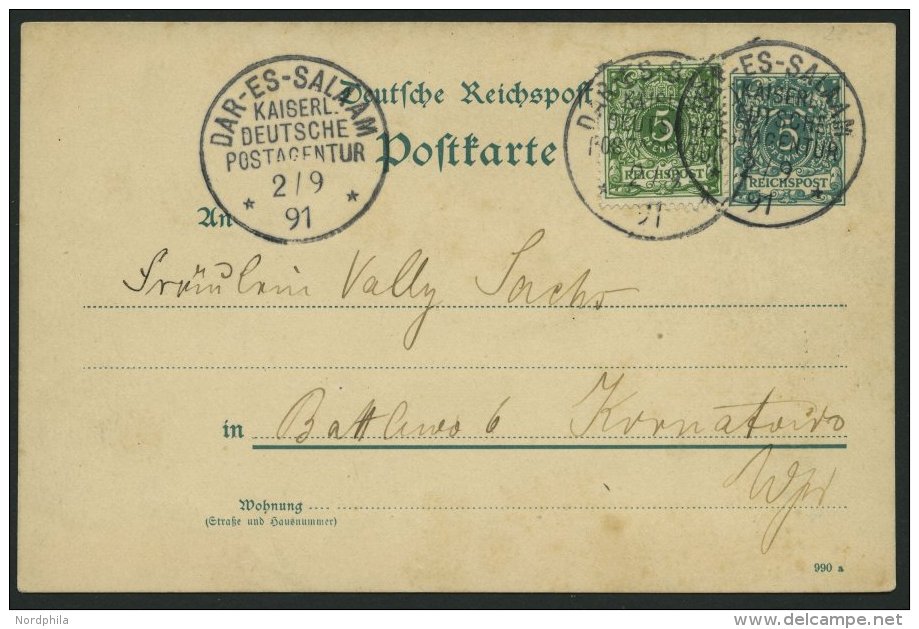 DAR-ES-SALAAM
KAISERL.
DEUTSCHE
POSTAGENTUR
2/9
91
Deutsche Reichspost
Postkarte
5
REICHSPOST
DAR-ES-SALAAM
KAISERL.
POSTAGENTUR
2/9
91
REICHSPOST
An
Fräulein Vally Sachs
in
6
Wohnung
(Straße und Hausnummer)
990 a
Nordphila
delcampe.net